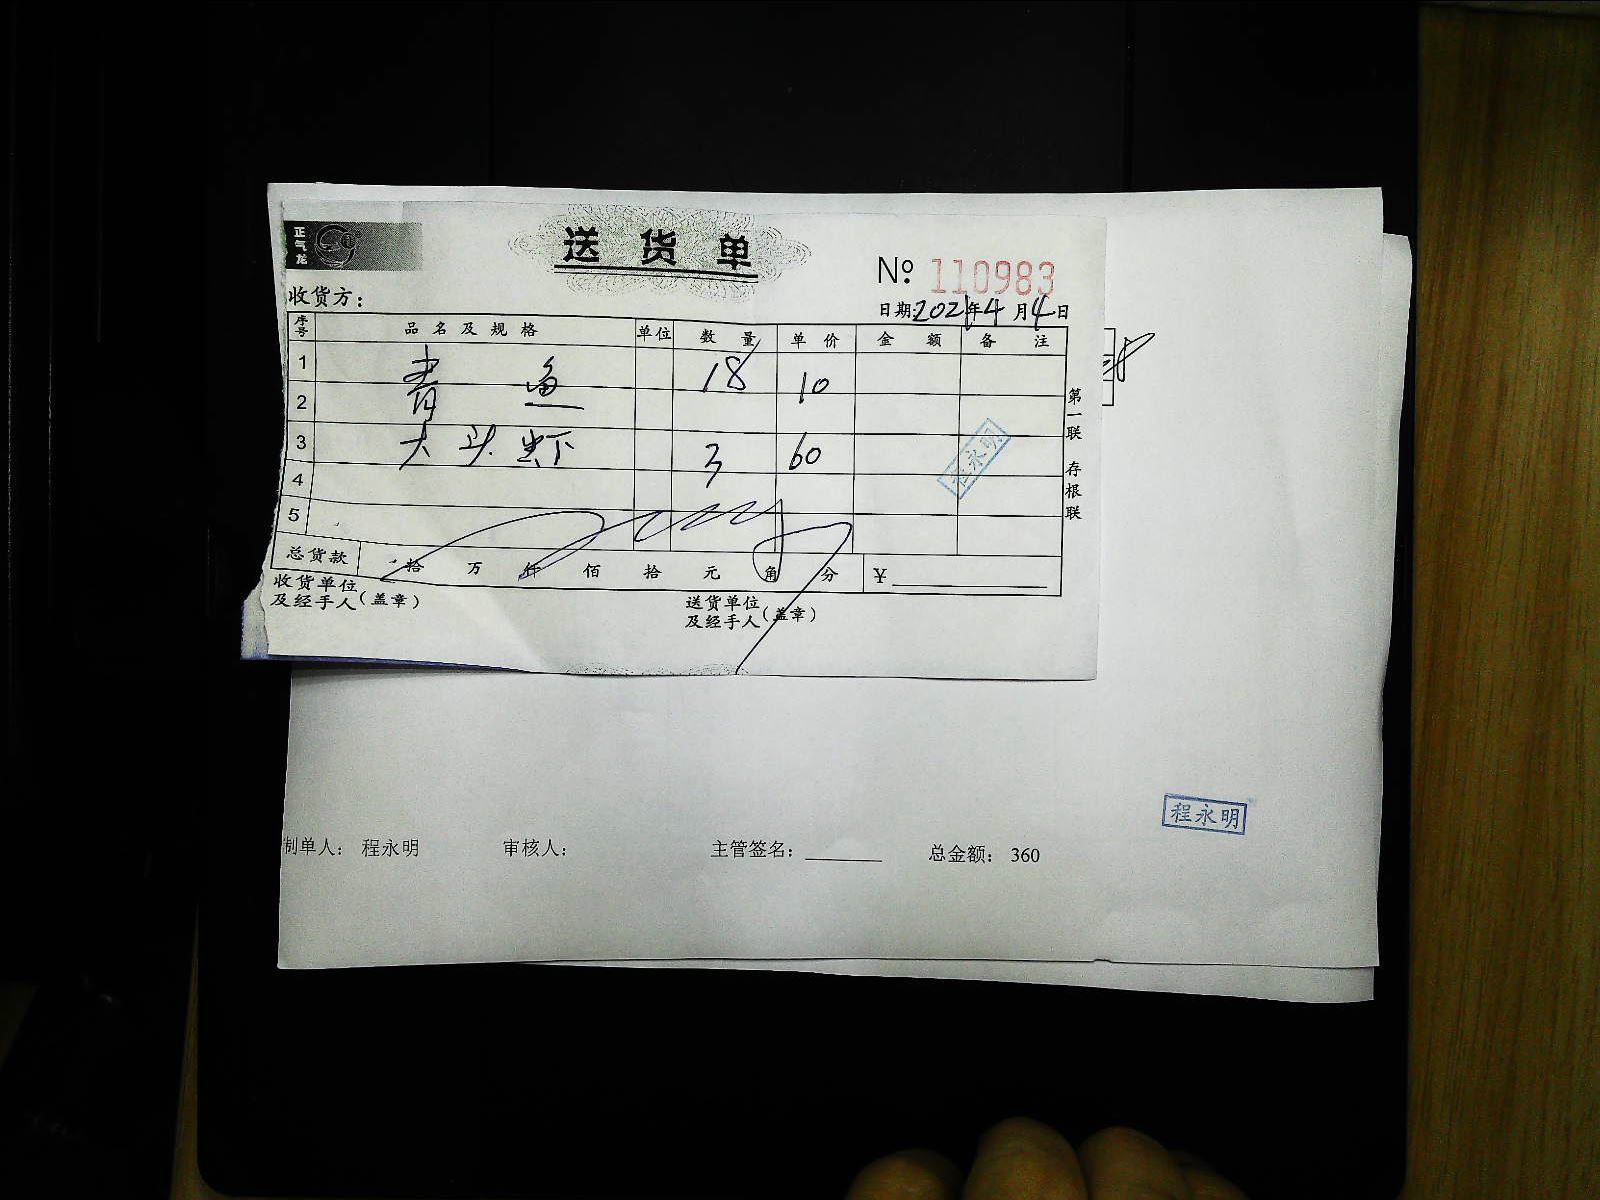 正气龙
送货单
№ 110983
收货方：
日期:2021年4月4日
序号 品名及规格 单位 数量 单价 金额 备注
1 青鱼 18 10
2
3 大头虾 3 60
4
5
程永明
总货款 拾 万 仟 佰 拾 元 角 分 ￥
收货单位及经手人(盖章)
送货单位及经手人(盖章)
第一联 存根联
程永明
制单人： 程永明 审核人： 主管签名： 总金额： 360